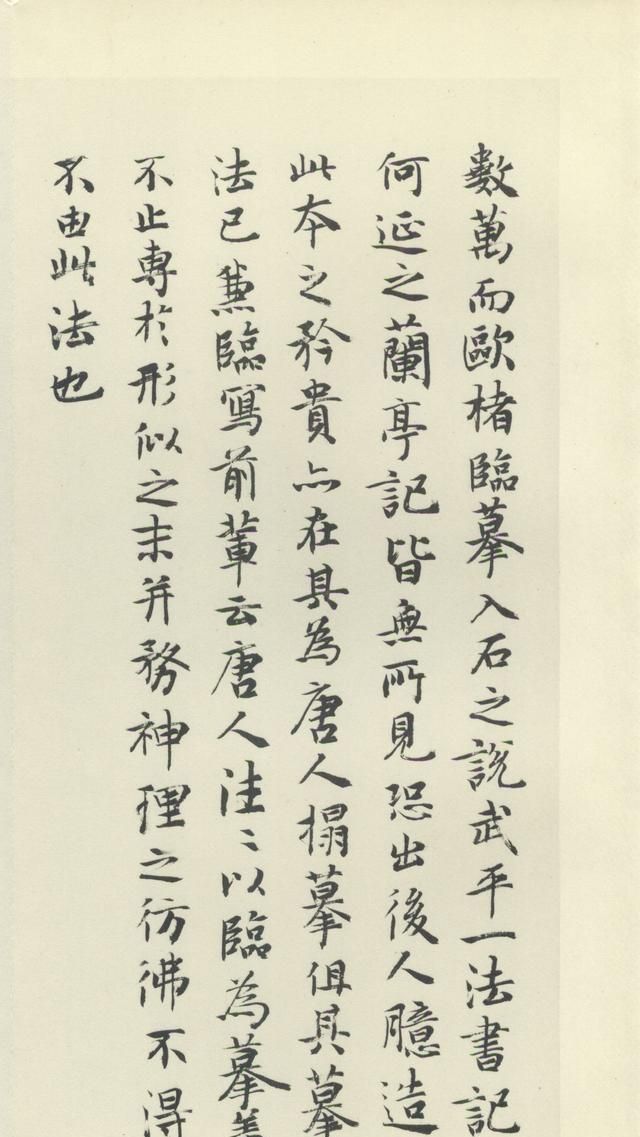 數萬而歐楮臨摹入石之說武平一法書記
何延之蘭亭記皆無所見恐出後人臆造
此本之矜貴亦在其為唐人搨摹俱具摹
法已兼臨寫前輩云唐人往〻以臨為摹蓋
不止專於形似之末并務神理之彷彿不得
不由此法也